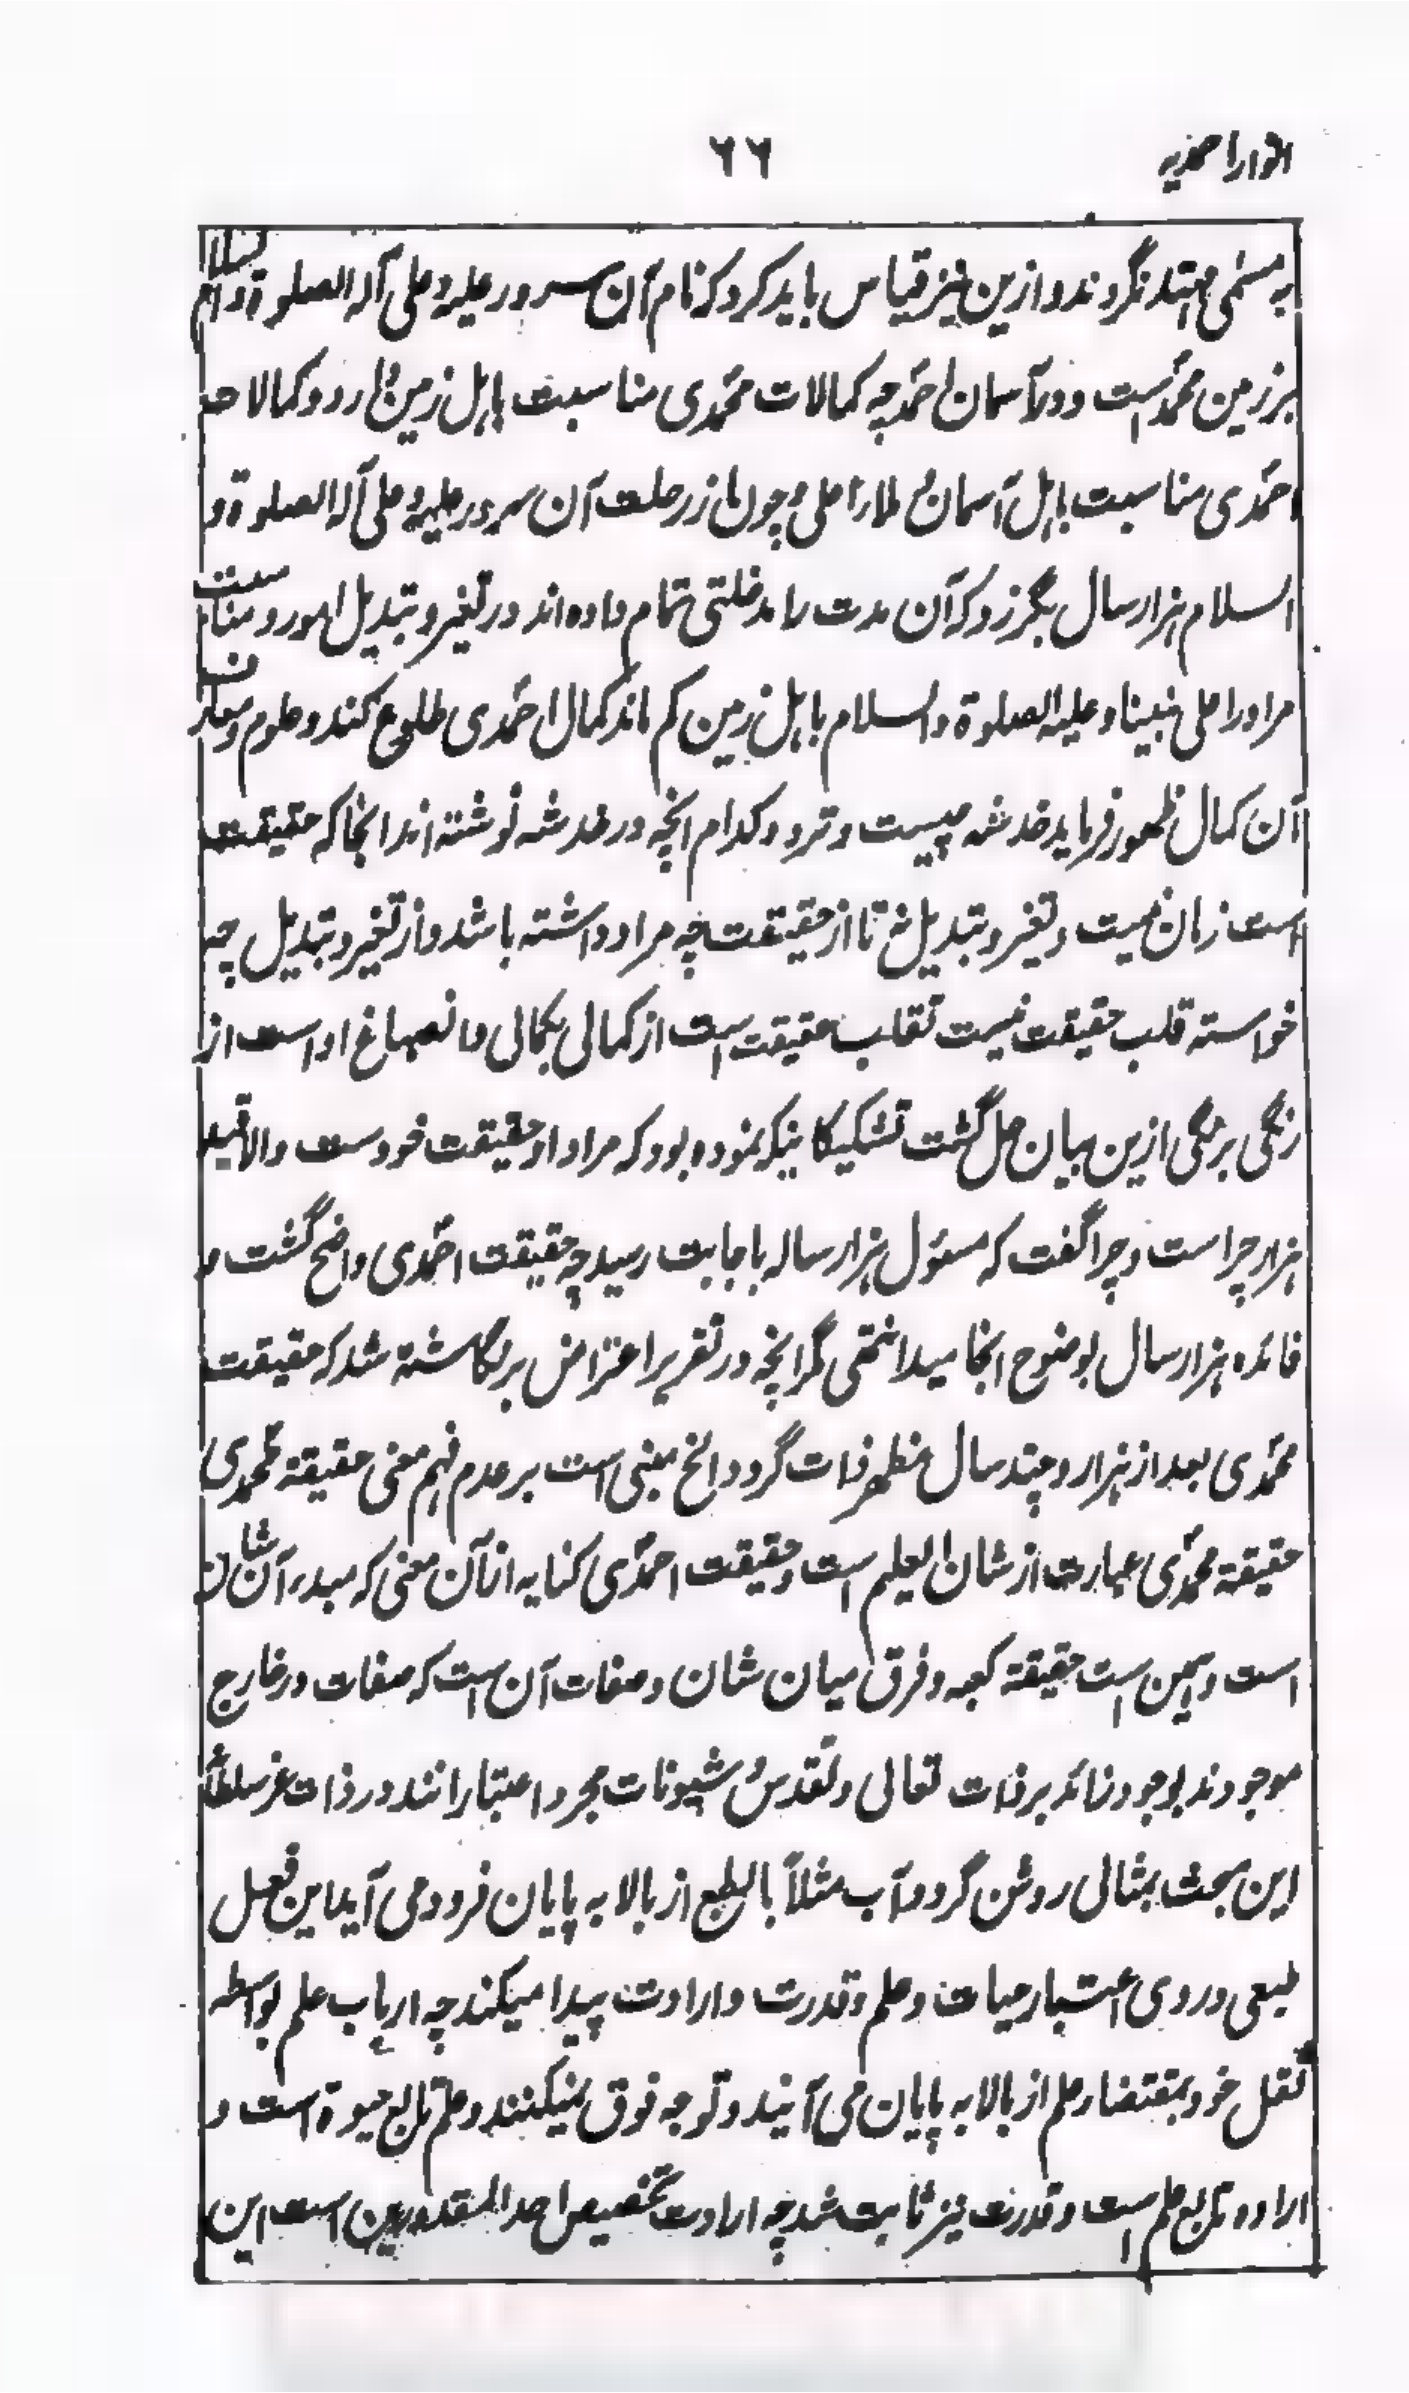 انوار احمدیه ٦٦
به مسمی مهتد نگردند و ازین نیز قیاس باید کرد که نام آن سرور علیه و علی آله الصلوة والسلام
بر زمین محمد است و در آسمان احمد چه کمالات محمدی مناسبت باهل زمین دارد و کمالات
احمدی مناسبت باهل آسمان و ملا اعلی و چون از رحلت آن سرور علیه و علی آله الصلوة و
السلام هزار سال بگزرد که آن مدت را مدخلتی تمام داده اند در تغیر و تبدیل امور و مناسبت
مر او را علی نبینا و علیه الصلوة والسلام باهل زمین کم ماند کمال احمدی طلوع کند و علوم و معارف
آن کمال ظهور فرماید خدشه چیست و تردد کدام انچه در خدشه نوشته اند انجا که حقیقت
است زمان نیست و تغیر و تبدیل نه تا از حقیقت چه مراد داشته باشد و از تغیر و تبدیل چه
خواسته قلب حقیقت نیست تقلب حقیقت است از کمالی بکمالی و انصباغ او است از
رنگی برنگی ازین بیان حل گشت تشکیکا نیکه نموده بود که مراد او حقیقت خودست و الا قید
هزار چراست و چرا گفت که مسئول هزار ساله باجابت رسید چه حقیقت احمدی واضح گشت و
فائده هزار سال بوضوح انجامید انتهی گر انچه در تقریر اعتراض برنگاشته شد که حقیقت
محمدی بعد از هزار و چند سال مظهر ذات گردد الخ مبنی است بر عدم فهم معنی حقیقة محمدی
حقیقة محمدی عبارت از شان العلم است و حقیقت احمدی کنایه از آن معنی که مبدء آن شان
است و همین است حقیقة کعبه و فرق میان شان و صفات آن است که صفات در خارج
موجودند بوجود زائد بر ذات تعالی و تقدس و شیونات مجرد اعتبارانند در ذات عز سلطانه
این مبحث بمثالی روشن گردد آب مثلاً بالطبع از بالا به پایان فرود می آید این فعل
طبعی در وی اعتبار حیات و علم و قدرت و ارادت پیدا میکند چه ارباب علم بواسطه
ثقل خود بمقتضاء علم از بالا به پایان می آیند و توجه فوق نمیکنند و علم تابع حیوة است و
اراده تابع علم است و قدرت نیز ثابت شد چه ارادت تخصیص احد المقدورین است این